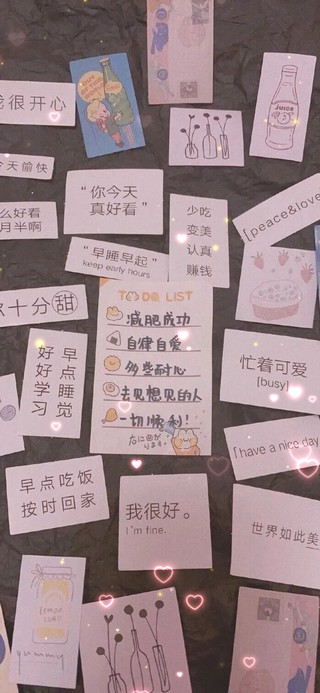 我很开心
JUICE
今天愉快
“你今天
真好看”
少吃
变美
认真
赚钱
[peace&love
么好看
月半啊
“早睡早起”
keep early hours
十分甜
TO DO LIST
减肥成功
自律自爱
多些耐心
去见想见的人
一切顺利!
好 早
好 点
学 睡
习 觉
忙着可爱
[busy]
「have a nice day
早点吃饭
按时回家
我很好。
I'm fine.
世界如此美
LEMON
yummy